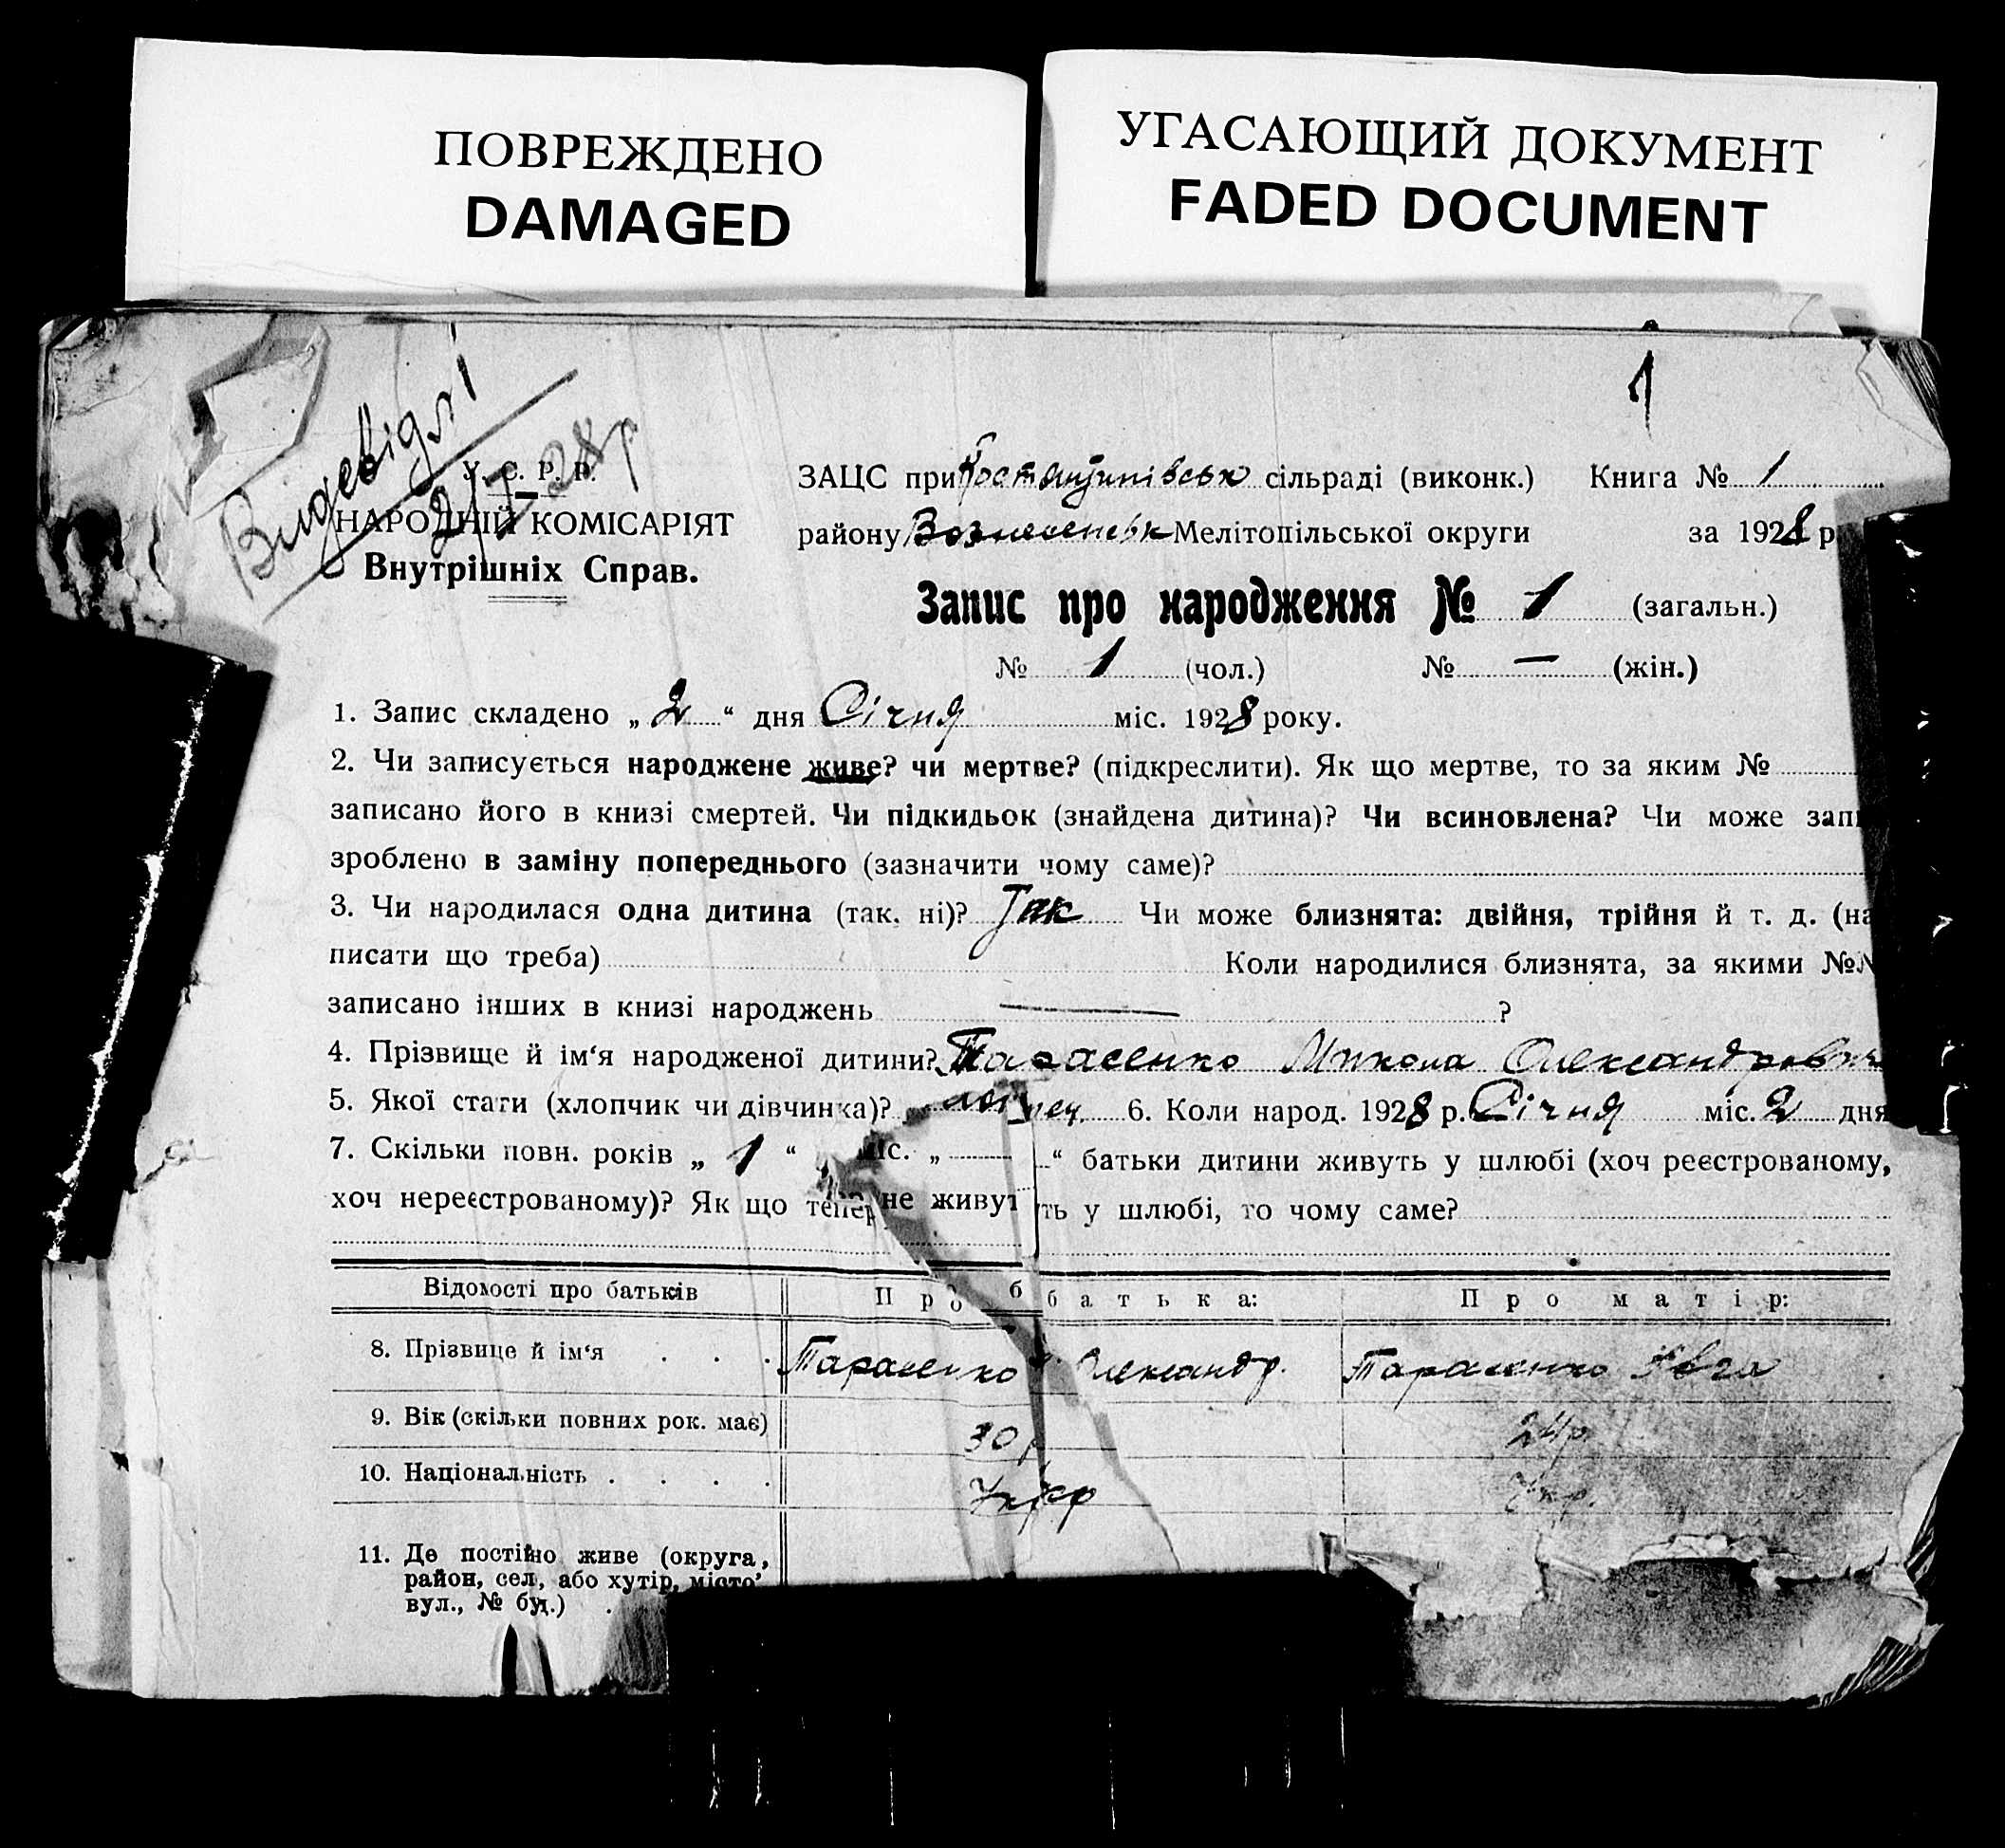 ПОВРЕЖДЕНО
DAMAGED
УГАСАЮЩИЙ ДОКУМЕНТ
FADED DOCUMENT
1
2/I 28р
У. С. Р. Р.
НАРОДНІЙ КОМІСАРІЯТ
Внутрішніх Справ.
ЗАЦС при Костянтинівськ сільраді (виконк.) Книга № 1
району Вознесенськ Мелітопільської округи за 1928 р
Запис про народження № 1 (загальн.)
№ 1 (чол.) № — (жін.)
1. Запис складено „ 2 “ дня Січня міс. 1928 року.
2. Чи записується народжене живе? чи мертве? (підкреслити). Як що мертве, то за яким №
записано його в книзі смертей. Чи підкидьок (знайдена дитина)? Чи всиновлена? Чи може зап
зроблено в заміну попереднього (зазначити чому саме)?
3. Чи народилася одна дитина (так, ні)? Так Чи може близнята: двійня, трійня й т. д. (на
писати що треба) Коли народилися близнята, за якими №№
записано інших в книзі народжень — ?
4. Прізвище й ім‘я народженої дитини? Тарасенко Микола Олександрович
5. Якої стати (хлопчик чи дівчинка)? 6. Коли народ. 1928 р. Січня міс. 2 дня
7. Скільки повн. років „ 1 “ міс. „ “ батьки дитини живуть у шлюбі (хоч реєстрованому,
хоч нереєстрованому)? Як що тепер не живуть у шлюбі, то чому саме?
Відомості про батьків Про батька: Про матір:
8. Прізвище й ім‘я . . . Тарасенко Олександр. Тарасенко Явга
9. Вік (скільки повних рок. має) 30 р 24р.
10. Національність . . . . Укр Укр.
11. Де постійно живе (округа,
район, сел, або хутір, місто,
вул., № буд.) .